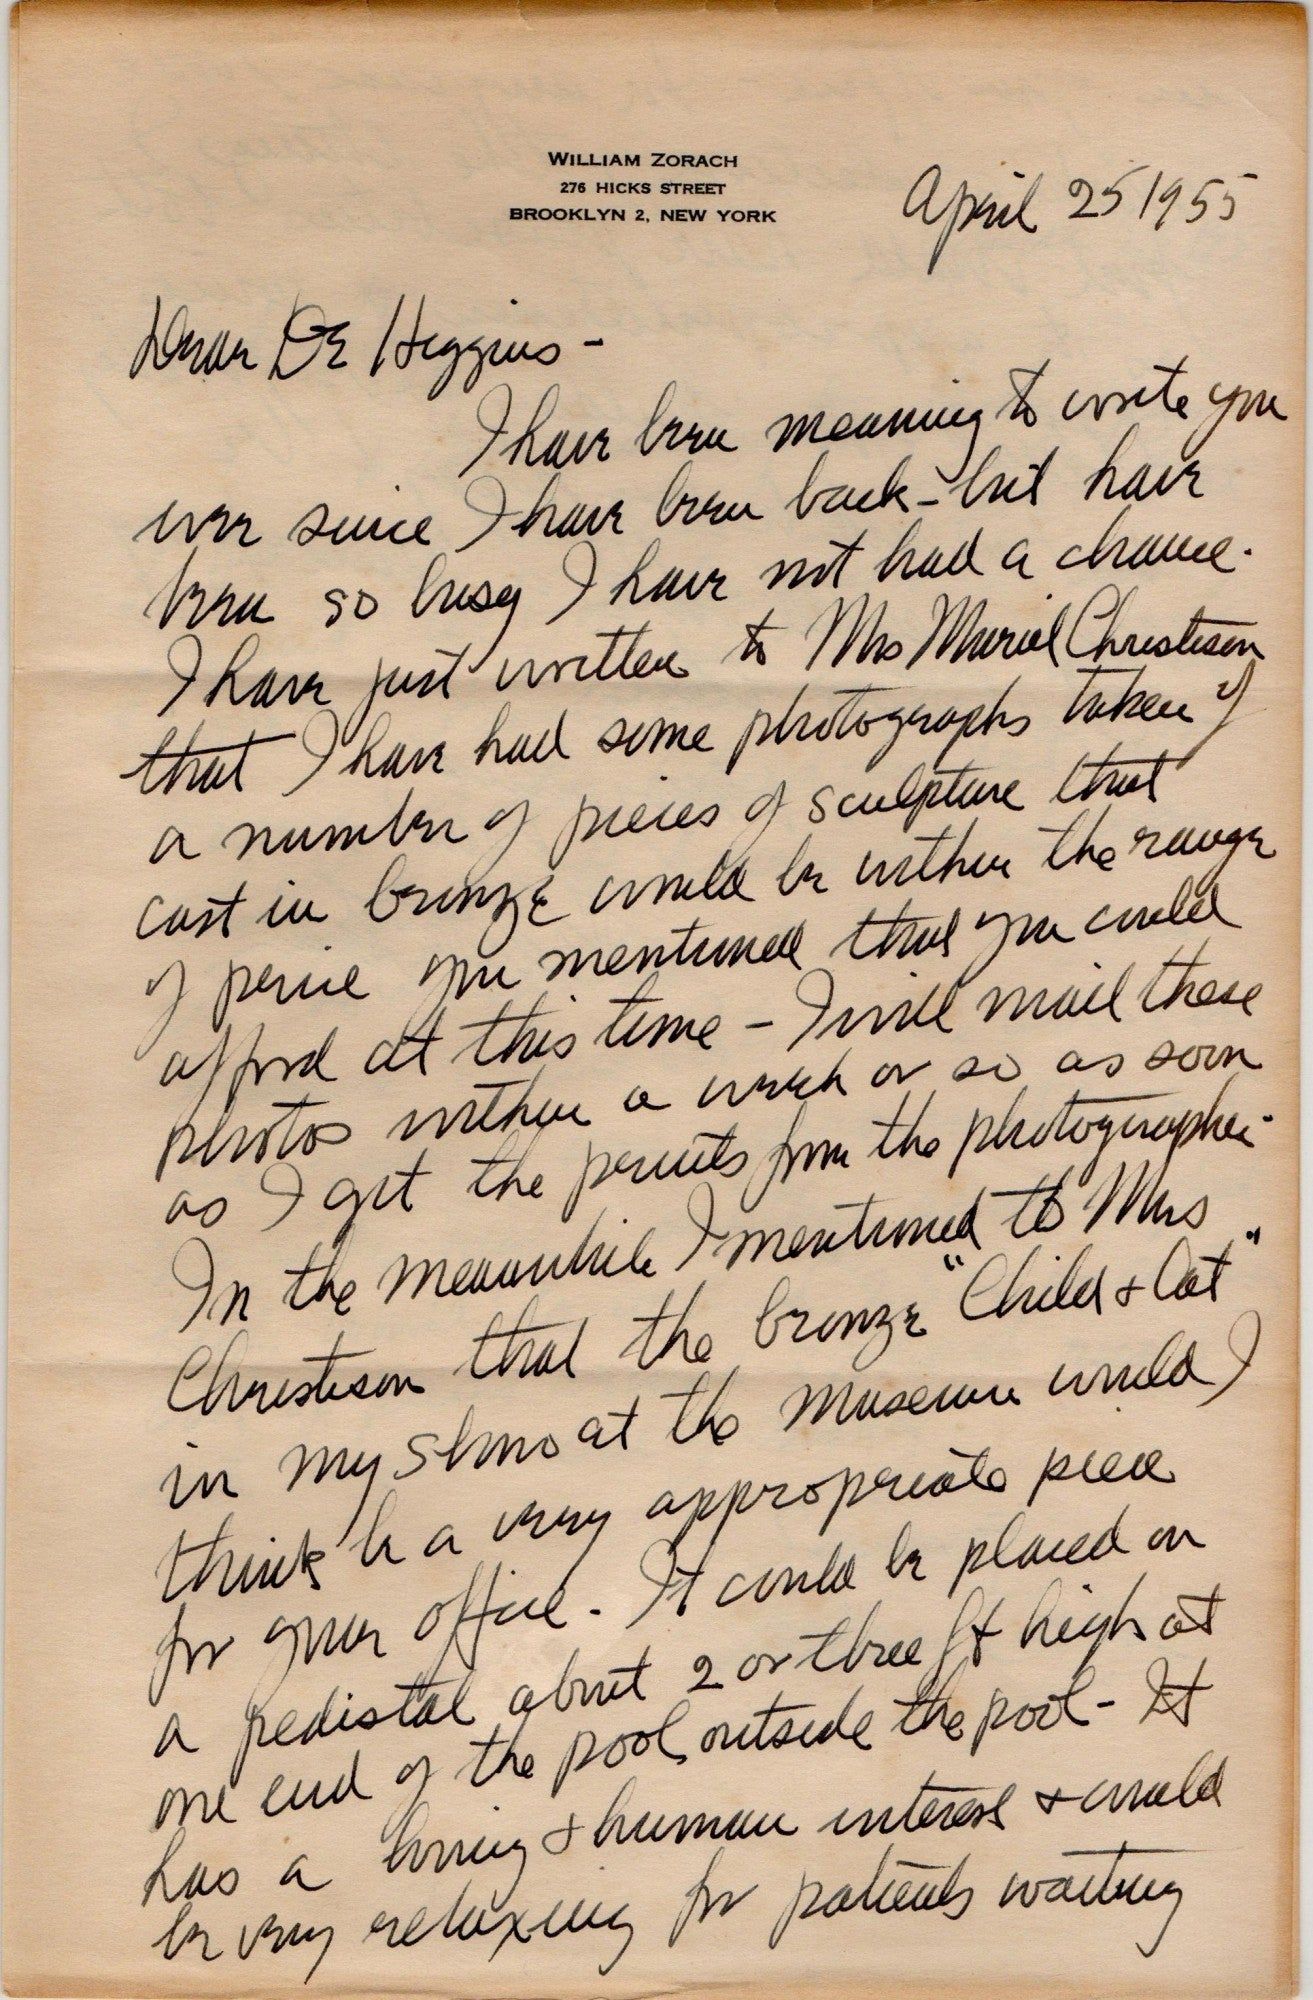 WILLIAM ZORACH
276 HICKS STREET
BROOKLYN 2, NEW YORK
April 25 1955
Dear Dr Higgins -
I have been meaning to write you
ever since I have been back - but have
been so busy I have not had a chance.
I have just written to Mrs Muriel Christison
that I have had some photographs taken of
a number of pieces of sculpture that
cast in bronze would be within the range
of price you mentioned that you could
afford at this time - I will mail these
photos within a week or so as soon
as I get the prints from the photographer.
In the meanwhile I mentioned to Mrs
Christison that the bronze "Child & Cat"
in my show at the Museum would I
think be a very appropriate piece
for your office. It could be placed on
a pedistal about 2 or three ft high at
one end of the pool outside the pool - It
has a loving & human interest & would
be very relaxing for patients waiting